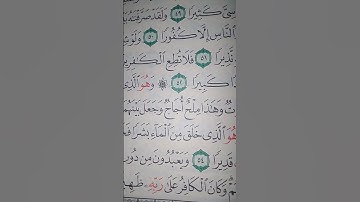 سِىَّ كَثِيرًا ٤٩ وَلَقَدْ صَرَّفْنَٰهُ
ٱلنَّاسِ إِلَّا كُفُورًا ٥٠ وَلَوْ شِ
نَّذِيرًا ٥١ فَلَا تُطِعِ ٱلْكَٰفِرِينَ
ا كَبِيرًا ٥٢ ۞ وَهُوَ ٱلَّذِى
تٌ وَهَٰذَا مِلْحٌ أُجَاجٌ وَجَعَلَ بَيْنَهُمَ
هُوَ ٱلَّذِى خَلَقَ مِنَ ٱلْمَآءِ بَشَرًا فَجَ
قَدِيرًا ٥٤ وَيَعْبُدُونَ مِن دُونِ
مْ وَكَانَ ٱلْكَافِرُ عَلَىٰ رَبِّهِۦ ظَهِي